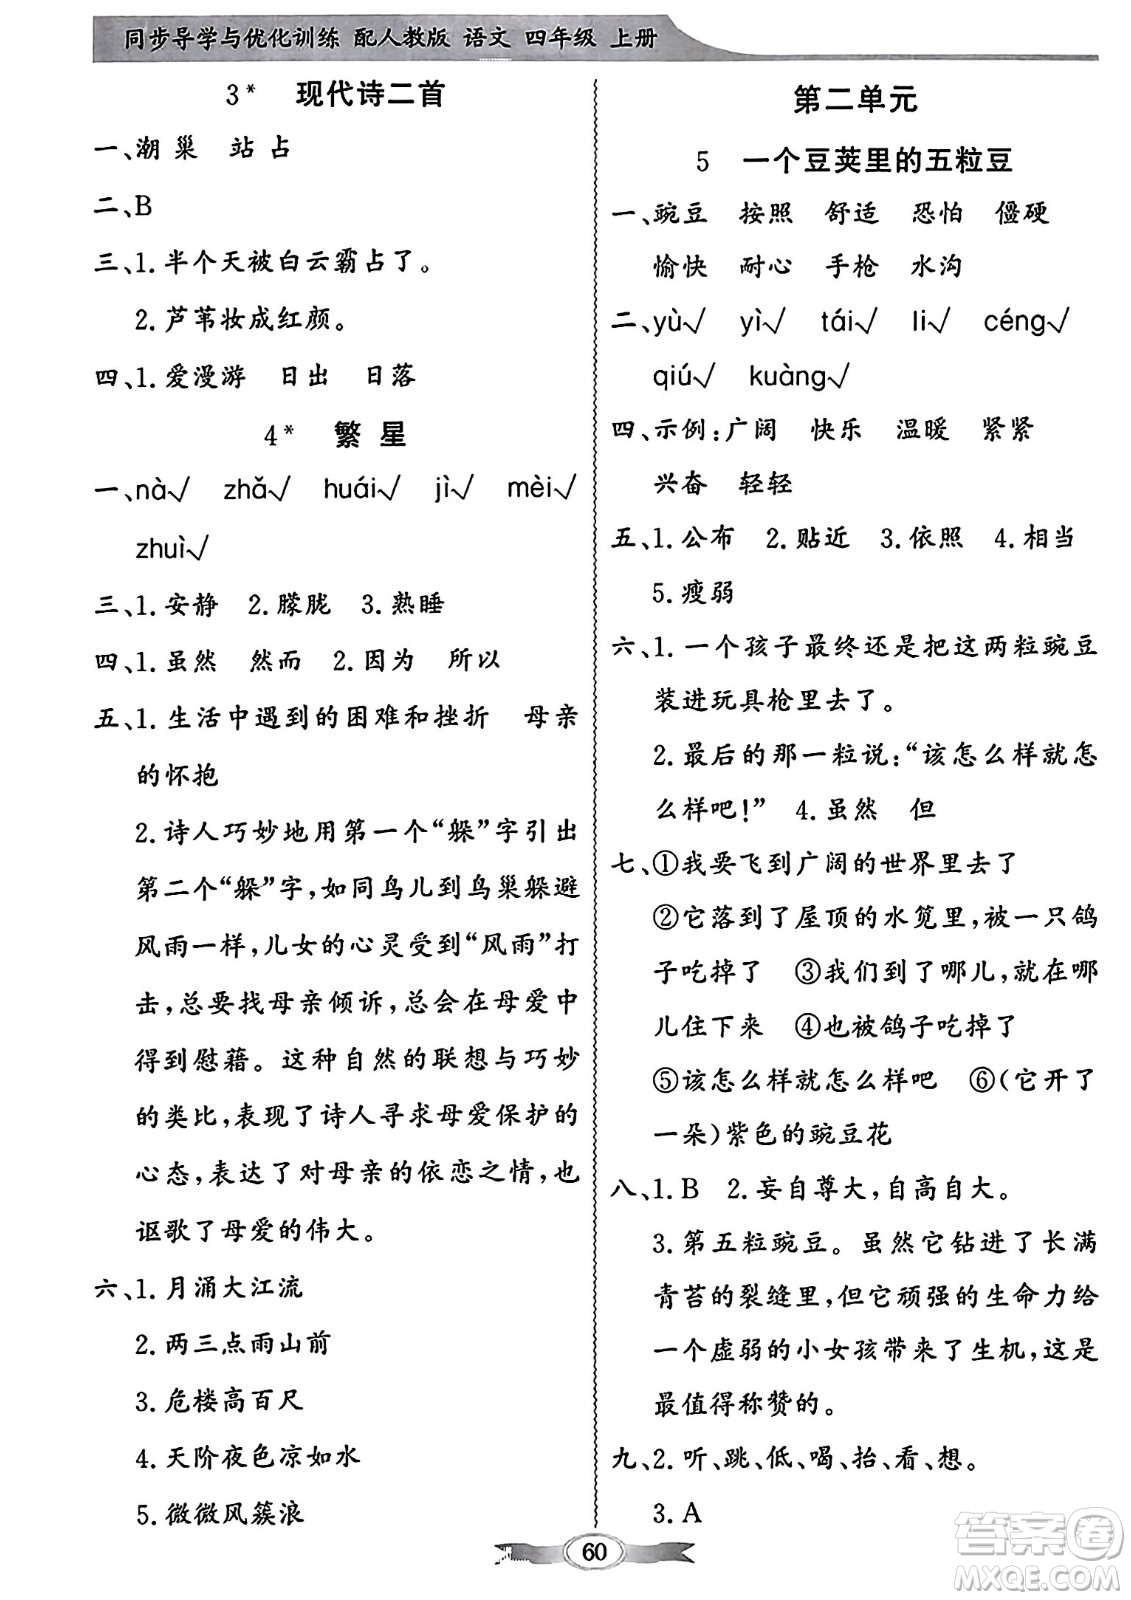 同步导学与优化训练 配人教版 语文 四年级 上册
3* 现代诗二首
一、潮 巢 站 占
二、B
三、1. 半个天被白云霸占了。
2. 芦苇妆成红颜。
四、1. 爱漫游 日出 日落
4* 繁 星
一、nà√ zhǎ√ huái√ jì√ mèi√
zhuì√
三、1. 安静 2. 朦胧 3. 熟睡
四、1. 虽然 然而 2. 因为 所以
五、1. 生活中遇到的困难和挫折 母亲
的怀抱
2. 诗人巧妙地用第一个“躲”字引出
第二个“躲”字，如同鸟儿到鸟巢躲避
风雨一样，儿女的心灵受到“风雨”打
击，总要找母亲倾诉，总会在母爱中
得到慰藉。这种自然的联想与巧妙
的类比，表现了诗人寻求母爱保护的
心态，表达了对母亲的依恋之情，也
讴歌了母爱的伟大。
六、1. 月涌大江流
2. 两三点雨山前
3. 危楼高百尺
4. 天阶夜色凉如水
5. 微微风簇浪
第二单元
5 一个豆荚里的五粒豆
一、豌豆 按照 舒适 恐怕 僵硬
愉快 耐心 手枪 水沟
二、yù√ yì√ tái√ li√ céng√
qiú√ kuàng√
四、示例：广阔 快乐 温暖 紧紧
兴奋 轻轻
五、1. 公布 2. 贴近 3. 依照 4. 相当
5. 瘦弱
六、1. 一个孩子最终还是把这两粒豌豆
装进玩具枪里去了。
2. 最后的那一粒说：“该怎么样就怎
么样吧！” 4. 虽然 但
七、①我要飞到广阔的世界里去了
②它落到了屋顶的水笕里，被一只鸽
子吃掉了 ③我们到了哪儿，就在哪
儿住下来 ④也被鸽子吃掉了
⑤该怎么样就怎么样吧 ⑥（它开了
一朵）紫色的豌豆花
八、1. B 2. 妄自尊大，自高自大。
3. 第五粒豌豆。虽然它钻进了长满
青苔的裂缝里，但它顽强的生命力给
一个虚弱的小女孩带来了生机，这是
最值得称赞的。
九、2. 听、跳、低、喝、抬、看、想。
3. A
60
答案圈
MXQE.COM